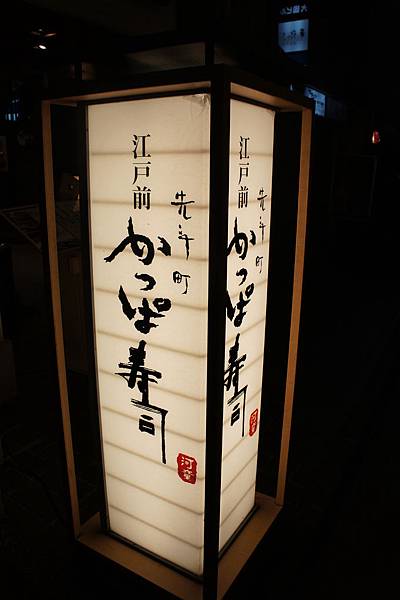 先斗町
江戸前
かっぱ寿司
河童
先斗町
江戸前
かっぱ寿司
河童